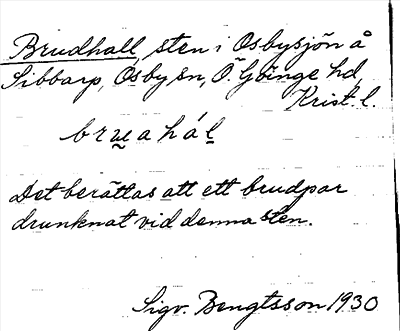 Brudhall, sten i Osbysjön å
Sibbarp, Osby sn, Ö. Göinge hd,
Krist. l.
brṳahál̲
Det berättas att ett brudpar
drunknat vid denna sten.
Sigv. Bengtsson 1930